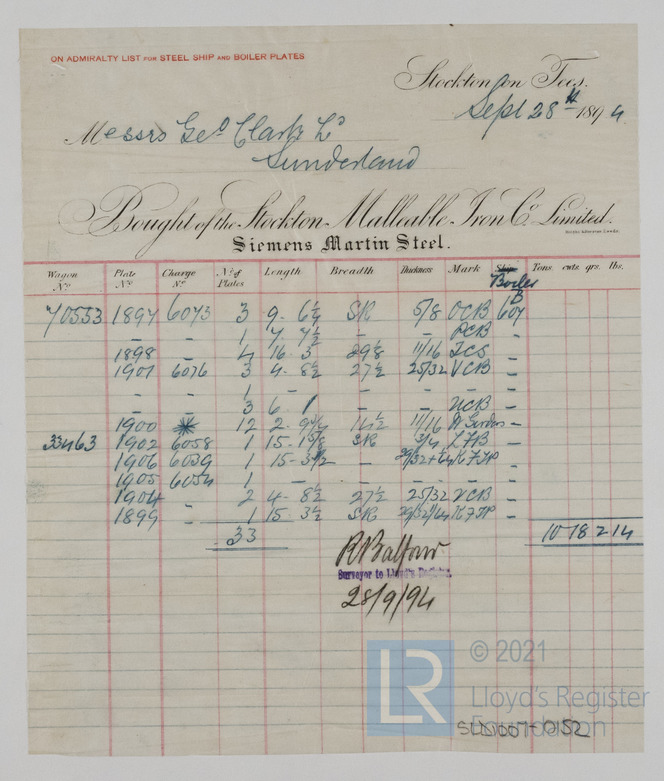 ON ADMIRALTY LIST FOR STEEL SHIP AND BOILER PLATES
Stockton on Tees.
Sept 28th 1894
Messrs Geo Clark Ld
Sunderland
Bought of the Stockton Malleable Iron Co. Limited.
Siemens Martin Steel.
Wagon No. Plate No. Charge No. No. of Plates Length Breadth Thickness Mark Ship Tons cwts qrs. lbs.
Boiler
70553 1897 6073 3 9 - 6 1/4 SR 5/8 OCB 607 B
- - 1 7 - 7 1/2 - - PCB -
1898 - 4 16 - 3 29 1/8 11/16 ICS -
1901 6076 3 4 - 8 1/2 27 1/2 25/32 VCB -
- - 1 - - - - -
- - 3 6 1 UCB -
1900 * 12 2 - 14 1/2 11/16 -
33463 1902 6058 1 15 - SR 3/4 LFB -
1906 6039 1 15 - 3 1/2 - KFTP -
1905 6054 1 - -
1904 - 2 4 - 8 1/2 27 1/2 25/32 VCB -
1899 - 1 15 - 3 1/2 SR KFTP -
33 10 18 2 14
R Balfour
Surveyor to Lloyd's Register
28/9/94
© 2021
LR Lloyd's Register
Foundation
SUN007-0152